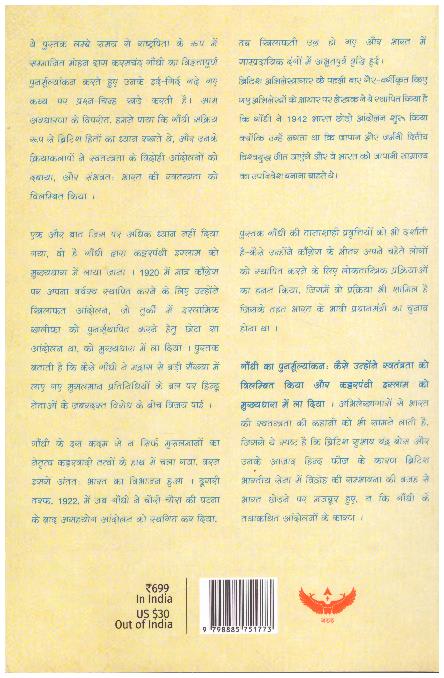 ये पुस्तक लम्बे समय से राष्ट्रपिता के रूप में
सम्मानित मोहन दास करमचंद गाँधी का विद्वतापूर्ण
पुनर्मूल्यांकन करते हुए उनके इर्द-गिर्द गढ़े गए
कथ्य पर प्रश्नचिह्न खड़े करती है। आम
अवधारणा के विपरीत, हमने पाया कि गाँधी सक्रिय
रूप से ब्रिटिश हितों का ध्यान रखते थे, और उनके
क्रियाकलापों ने स्वतन्त्रता के विद्रोही आन्दोलनों को
दबाया, और संभवतः भारत की स्वतन्त्रता को
विलम्बित किया।
एक और बात जिस पर अधिक ध्यान नहीं दिया
गया, वो है गाँधी द्वारा कट्टरपंथी इस्लाम को
मुख्यधारा में लाया जाना। 1920 में मात्र काँग्रेस
पर अपना वर्चस्व स्थापित करने के लिए उन्होंने
खिलाफत आंदोलन, जो तुर्की में इस्लामिक
खलीफा को पुनर्स्थापित करने हेतु छेड़ा गया
आन्दोलन था, को मुख्यधारा में ला दिया। पुस्तक
बताती है कि कैसे गाँधी ने मद्रास से बड़ी संख्या में
लाए गए मुसलमान प्रतिनिधियों के बल पर हिन्दू
नेताओं के जबरदस्त विरोध के बीच विजय पाई।
गाँधी के इस कदम से न सिर्फ मुसलमानों का
नेतृत्व कट्टरवादी तत्वों के हाथ में चला गया, वरन
इससे अंततः भारत का विभाजन हुआ। दूसरी
तरफ, 1922, में जब गाँधी ने चौरी चौरा की घटना
के बाद असहयोग आंदोलन को स्थगित कर दिया,
तब खिलाफती उग्र हो गए और भारत में
साम्प्रदायिक दंगों में अभूतपूर्व वृद्धि हुई।
ब्रिटिश अभिलेखागार के पहली बार गैर-वर्गीकृत किए
गए अभिलेखों के आधार पर लेखक ने ये स्थापित किया है
कि गाँधी ने 1942 भारत छोड़ो आंदोलन शुरू किया
क्योंकि उन्हें लगता था कि जापान और जर्मनी द्वितीय
विश्वयुद्ध जीत जाएंगे और वे भारत को जापानी साम्राज्य
का उपनिवेश बनाना चाहते थे।
पुस्तक गाँधी की तानाशाही प्रवृत्तियों को भी दर्शाती
है-कैसे उन्होंने काँग्रेस के भीतर अपने चहेते लोगों
को स्थापित करने के लिए लोकतान्त्रिक प्रक्रियाओं
का हनन किया, जिसमें वो प्रक्रिया भी शामिल है
जिसके तहत भारत के भावी प्रधानमंत्री का चुनाव
होना था।
गाँधी का पुनर्मूल्यांकन: कैसे उन्होंने स्वतंत्रता को
विलम्बित किया और कट्टरपंथी इस्लाम को
मुख्यधारा में ला दिया। अभिलेखागारों से भारत
की स्वतन्त्रता की कहानी को भी सामने लाती है,
जिससे ये स्पष्ट है कि ब्रिटिश सुभाष चंद्र बोस और
उनके आजाद हिन्द फौज के कारण ब्रिटिश
भारतीय सेना में विद्रोह की सम्भावना की वजह से
भारत छोड़ने पर मजबूर हुए, न कि गाँधी के
तथाकथित आंदोलनों के कारण।
₹699
In India
US $30
Out of India
9 798885 751773
गरुड़